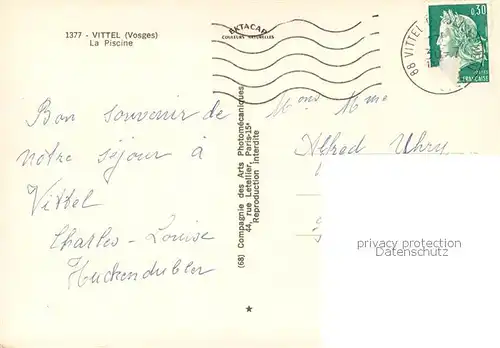 1377 - VITTEL (Vosges)
La Piscine
EKTACAP
COULEURS NATURELLES
0,30
FRANÇAISE
88 VITTEL
Bon souvenir de
notre séjour à
Vittel
Charles - Louise
Huckendubler
(68) Compagnie des Arts Photomécaniques
44, rue Letellier, Paris-15e
Reproduction interdite
Mons Mme
Alfred Uhry
privacy protection
Datenschutz